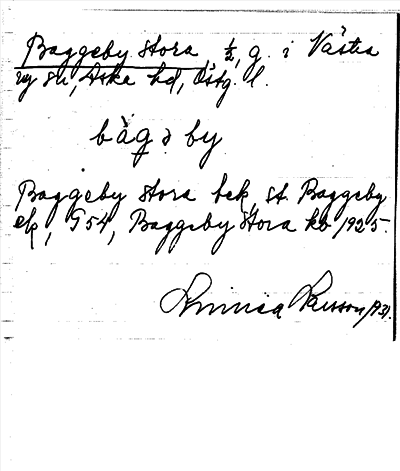 Baggeby stora, 1/2, g. i Västra
ny sn, Aska hd, Östg. l.
bàgə by
Baggeby stora bek, st. Baggeby
ek, G 54, Baggeby Stora kb 1925.
Larsson 1931.